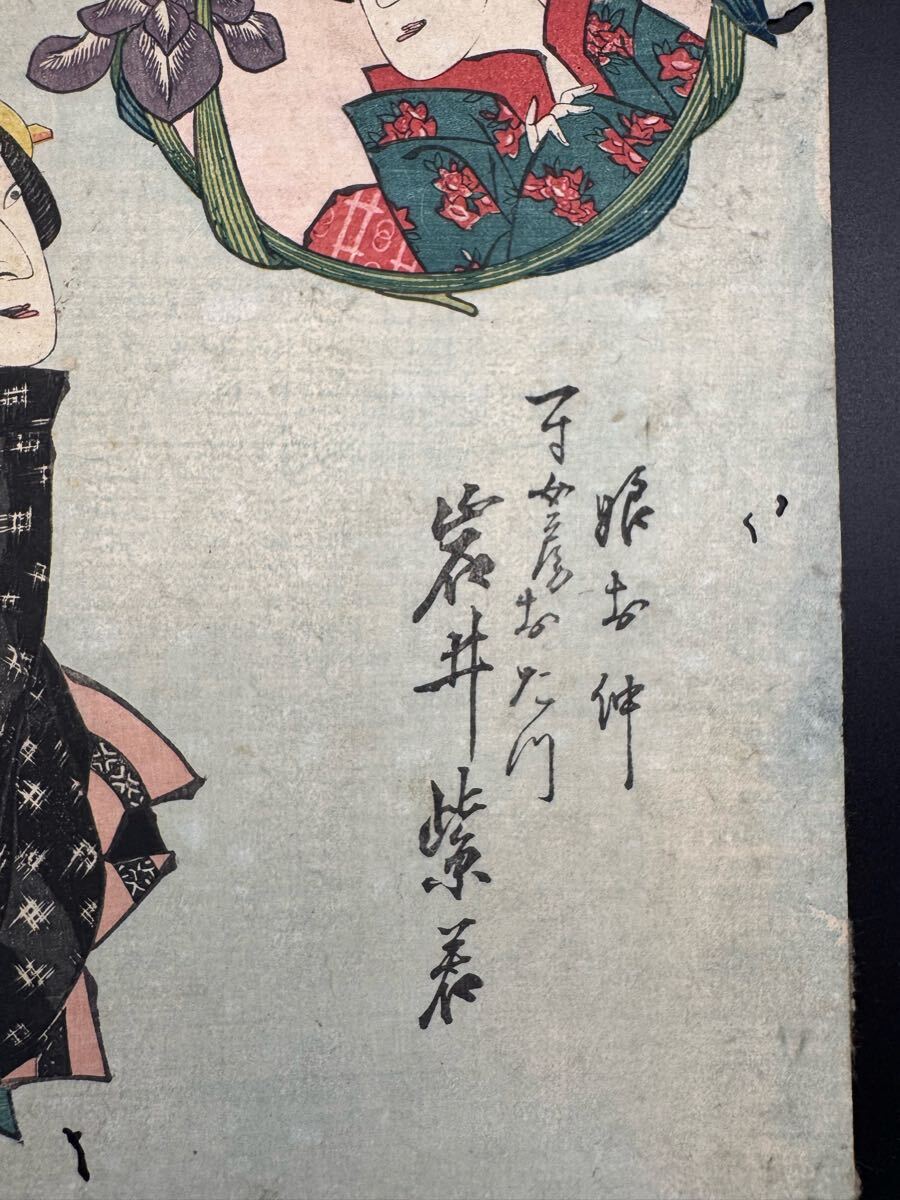 娘お仲
女房おたつ
岩井紫若